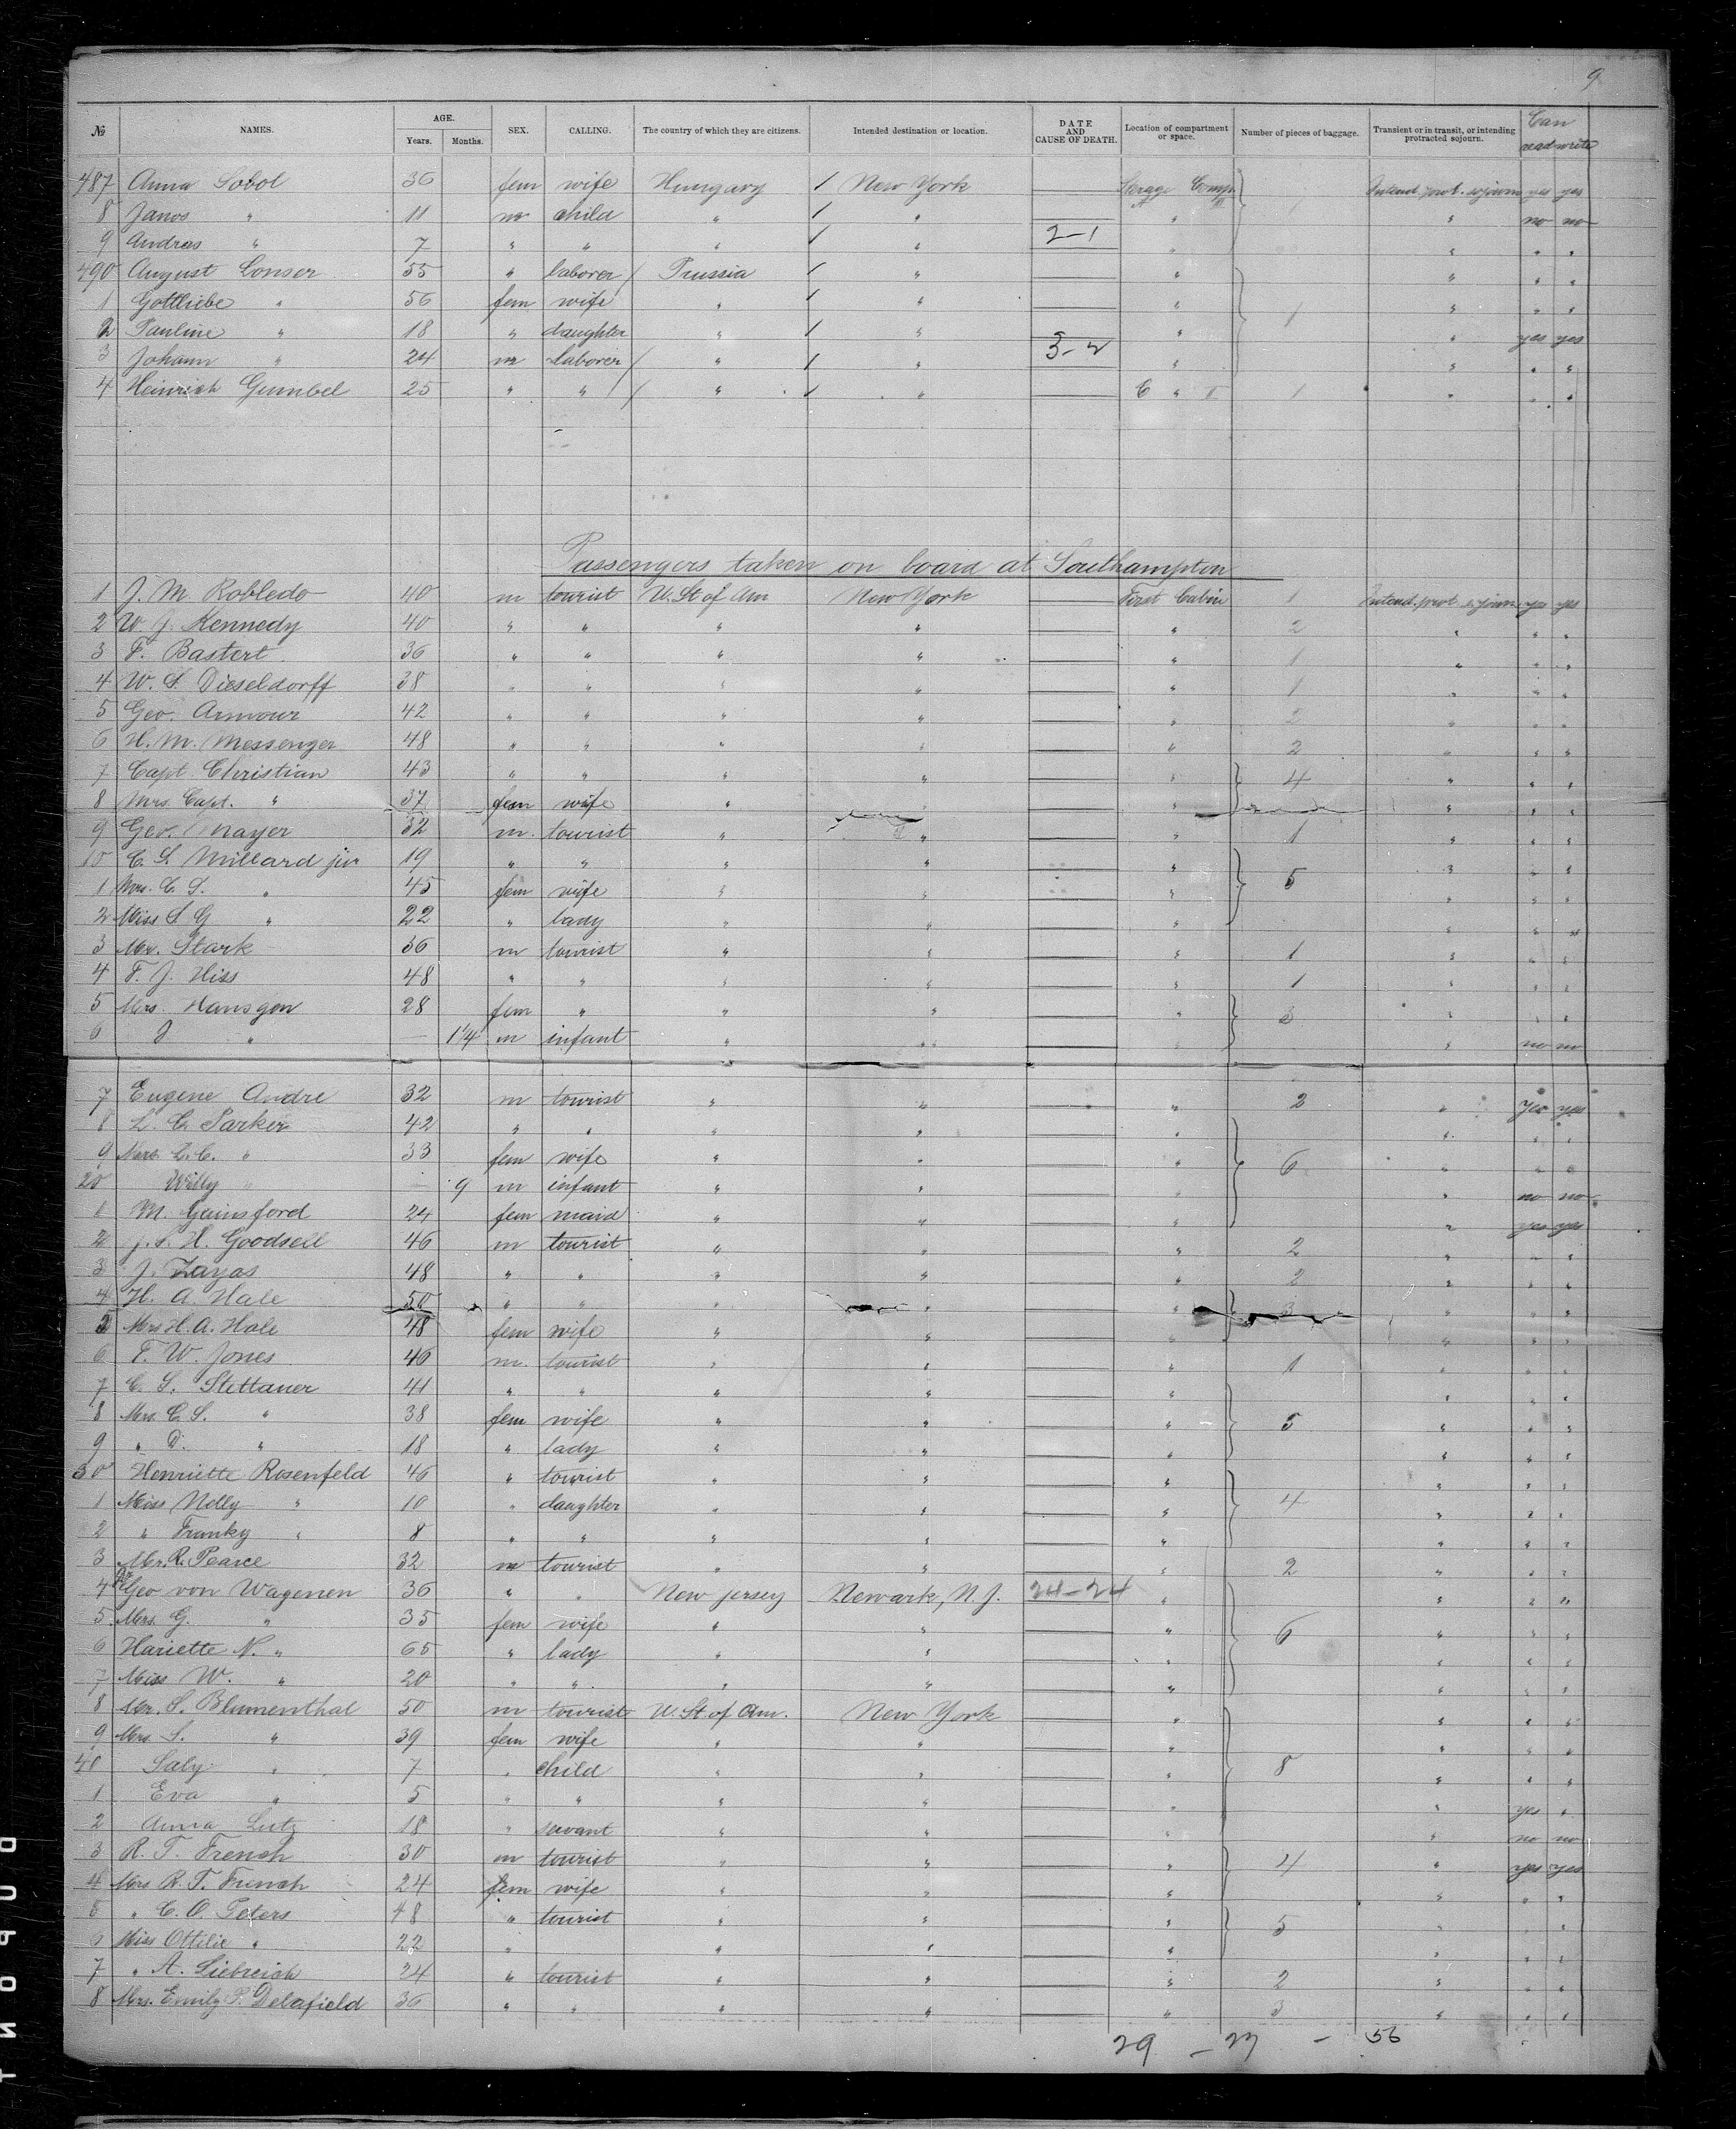 9
№ NAMES. AGE. Years. Months. SEX. CALLING. The country of which they are citizens. Intended destination or location. DATE AND CAUSE OF DEATH. Location of compartment or space. Number of pieces of baggage. Transient or in transit, or intending protracted sojourn. Can read write
487 Anna Sobol 36 fem wife Hungary / New York Intend. prot. sojourn yes yes
8 Janos " 11 m child " / " " " no no
9 Andras " 7 " " " / " 2-1 " " " "
490 August Lonser 55 " laborer / Prussia / " " " " "
1 Gottliebe " 56 fem wife " / " " 1 " " "
2 Pauline " 18 " daughter " / " " " yes yes
3 Johann " 24 m laborer / " / " 3-2 " " " "
4 Heinrich Gumbel 25 " " / " / " C " I 1 " " "
Passengers taken on board at Southampton
1 J. M. Robledo 40 m tourist U. St of Am New York First Cabin 1 Intend. prot sojourn yes yes
2 W. J. Kennedy 40 " " " " " 2 " " "
3 F. Bastert 36 " " " " " 1 " " "
4 W. S. Dieseldorff 38 " " " " " 1 " " "
5 Geo. Armour 42 " " " " " 2 " " "
6 H. M. Messenger 48 " " " " " 2 " " "
7 Capt. Christian 43 " " " " " 4 " " "
8 Mrs. Capt. " 37 fem wife " " " " "
9 Geo. Mayer 32 m. tourist " " " 1 " " "
10 C. S. Millard jur 19 " " " " " 5 " " "
1 Mrs. C. S. " 45 fem wife " " " " " "
2 Miss S G " 22 " lady " " " " " "
3 Mr. Stark 36 m tourist " " " 1 " " "
4 F. J. Hiss 48 " " " " " 1 " " "
5 Mrs. Hansgen 28 fem " " " " 3 " " "
6 J " — 1 1/4 m infant " " " " no no
7 Eugene Andre 32 m tourist " " " 2 " yes yes
8 L. C. Parker 42 " " " " " " " "
9 Mrs. L. C. " 33 fem wife " " " 6 " " "
20 Willy " — 9 m infant " " " " no no
1 M. Gainsford 24 fem maid " " " " yes yes
2 J. S. H. Goodsell 46 m tourist " " " 2 " " "
3 J. Zayas 48 " " " " " 2 " " "
4 H. A. Hale 50 " " " " " 3 " " "
5 Mrs H. A. Hale 48 fem wife " " " " " "
6 F. W. Jones 46 m. tourist " " " 1 " " "
7 C. S. Stettauer 41 " " " " " " " "
8 Mrs. C. S. " 38 fem wife " " " 5 " " "
9 " D. " 18 " lady " " " " " "
30 Henriette Rosenfeld 46 " tourist " " " " " "
1 Miss Nelly " 10 " daughter " " " 4 " " "
2 " Franky " 8 " " " " " " " "
3 Mr. R. Pearce 32 m tourist " " " 2 " " "
4 Geo von Wagenen 36 " " New Jersey Newark, N. J. 24-24 " " " "
5 Mrs. G. " 35 fem wife " " " 6 " " "
6 Hariette N. " 65 " lady " " " " " "
7 Miss W. " 20 " " " " " " " "
8 Mr. S. Blumenthal 50 m tourist U. St. of Am. New York " " " "
9 Mrs. S. " 39 fem wife " " " " " "
40 Saly " 7 " child " " " 8 " " "
1 Eva " 5 " " " " " " yes "
2 Anna Lutz 18 " servant " " " " no no
3 R. T. French 30 m tourist " " " 4 " yes yes
4 Mrs R. T. French 24 fem wife " " " " " "
5 " C. O. Peters 48 " tourist " " " 5 " " "
6 Miss Ottilie " 22 " " " " " " "
7 " A. Liebreich 24 " tourist " " " 2 " " "
8 Mrs. Emily P. Delafield 36 " " " " " 3 " " "
29 - 27 - 56